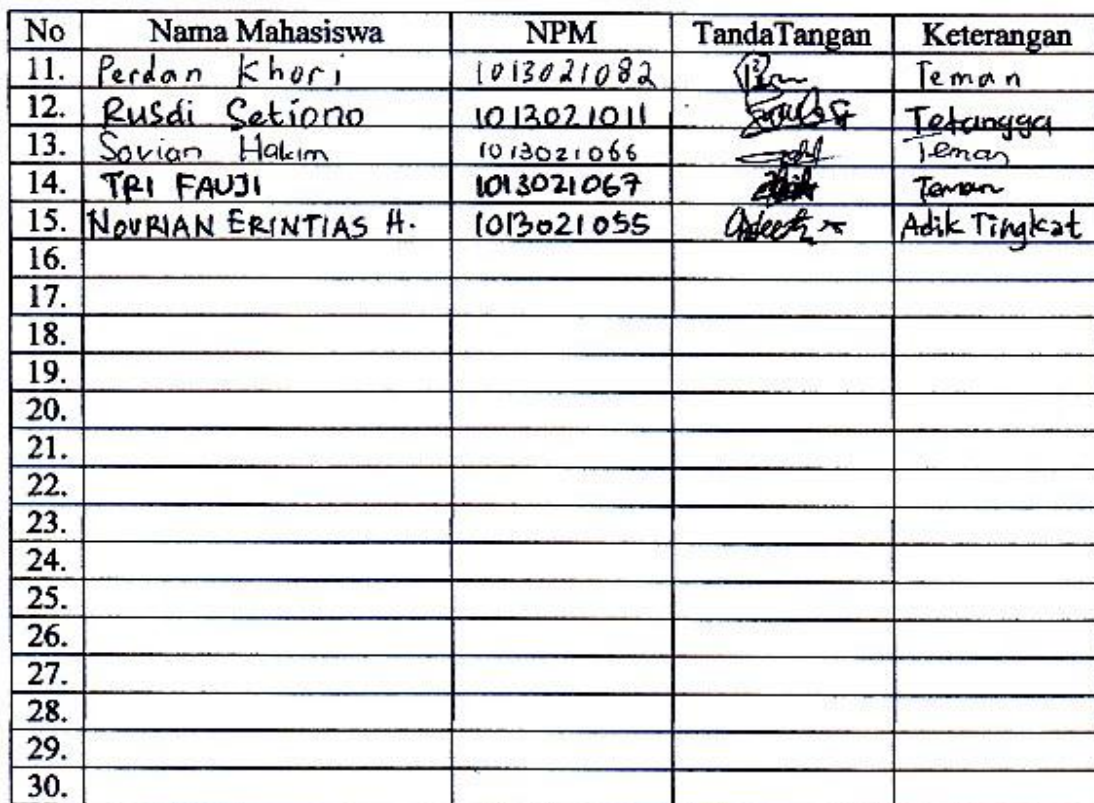 No Nama Mahasiswa NPM TandaTangan Keterangan
11. Perdan Khori 1013021082 Teman
12. Rusdi Setiono 1013021011 Tetangga
13. Sovian Hakim 1013021066 Teman
14. TRI FAUJI 1013021067 Teman
15. NOVRIAN ERINTIAS H. 1013021055 Adik Tingkat
16.
17.
18.
19.
20.
21.
22.
23.
24.
25.
26.
27.
28.
29.
30.